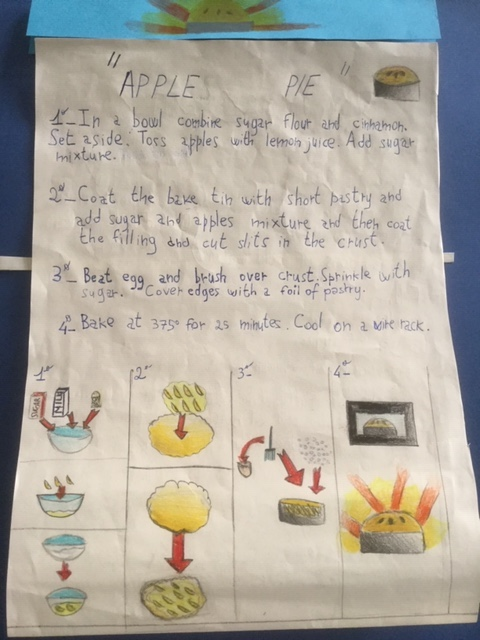 "APPLE PIE"
1ª_ In a bowl combine sugar flour and cinnamon.
Set aside. Toss apples with lemon juice. Add sugar
mixture.
2ª_ Coat the bake tin with short pastry and
add sugar and apples mixture and then coat
the filling and cut slits in the crust.
3ª_ Beat egg and brush over crust. Sprinkle with
sugar. Cover edges with a foil of pastry.
4ª_ Bake at 375° for 25 minutes. Cool on a wire rack.
1ª_ 2ª_ 3ª_ 4ª_
SUGAR